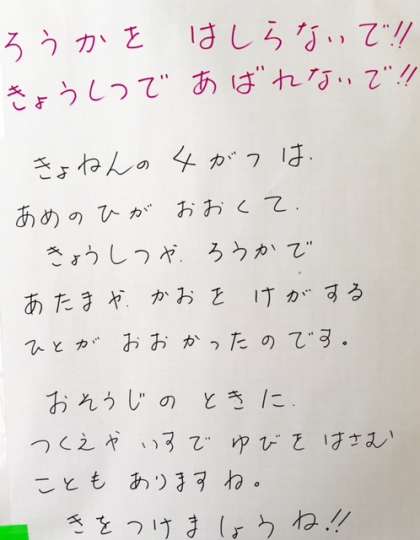 ろうかを はしらないで!!
きょうしつで あばれないで!!
きょねんの 4がつは、
あめのひが おおくて、
きょうしつや、ろうかで
あたまや、かおを けがする
ひとが おおかったのです。
おそうじの ときに、
つくえや いすで ゆびを はさむ
ことも ありますね。
きをつけましょうね!!